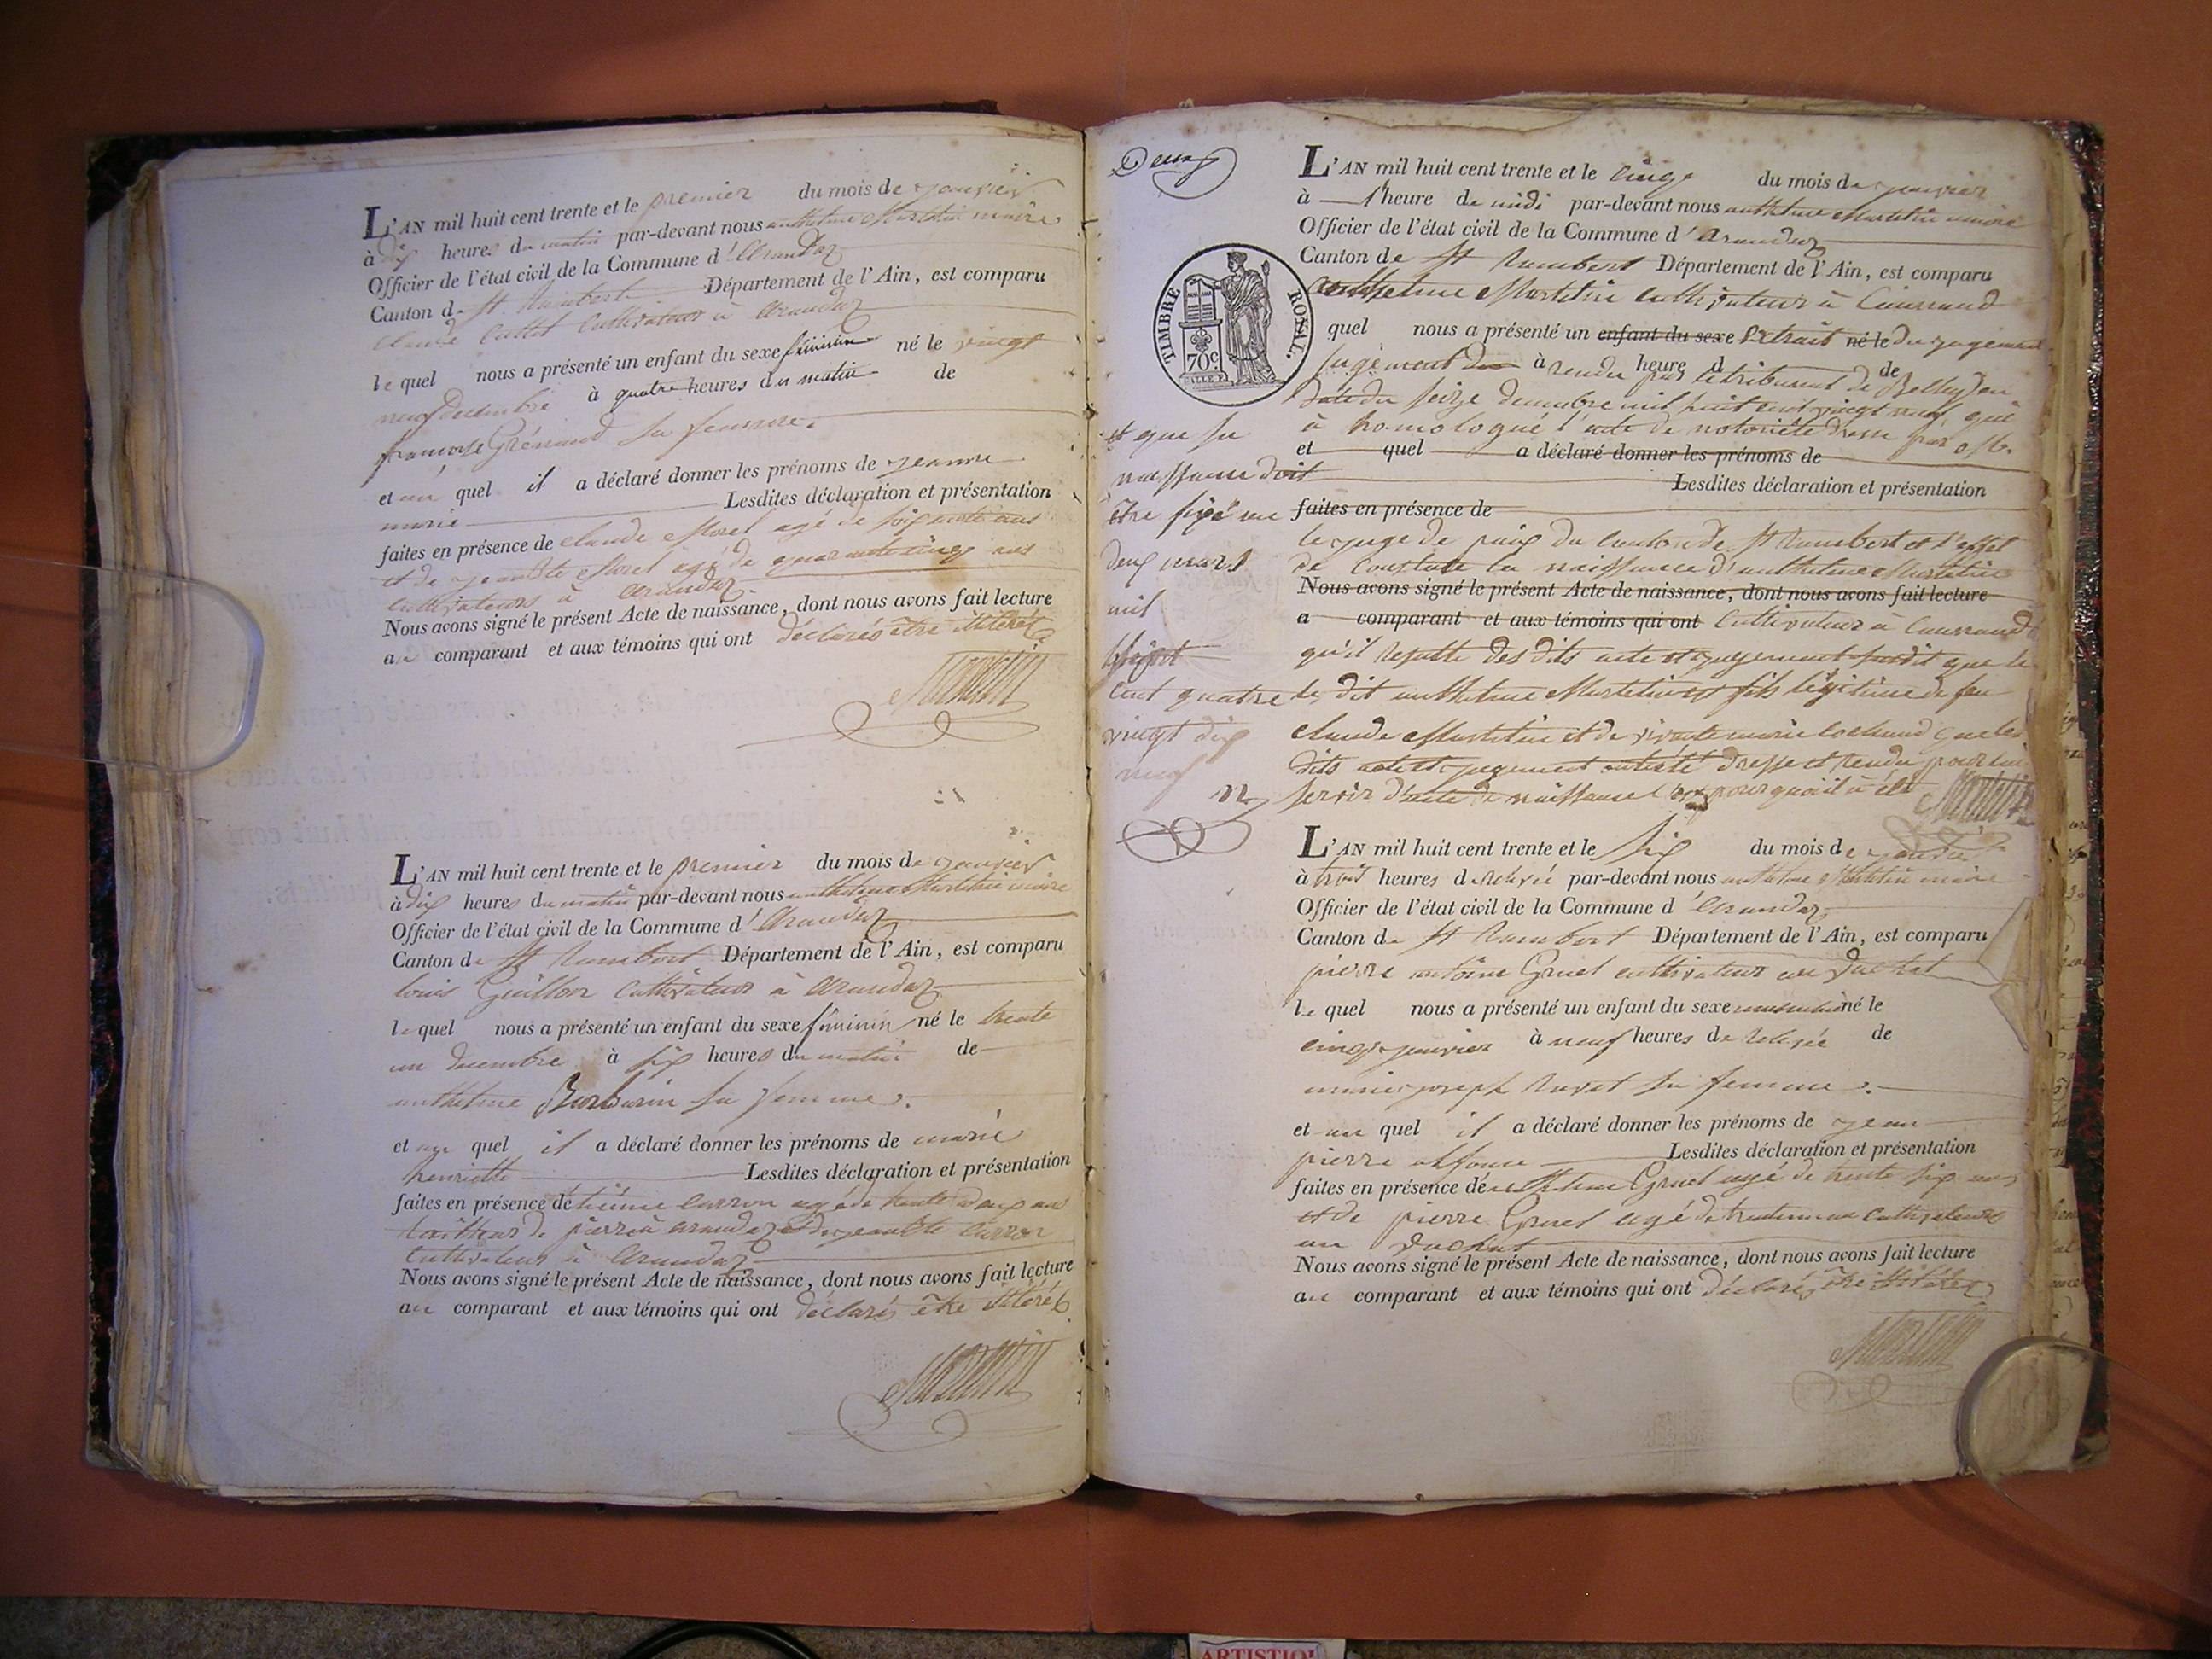 L'AN mil huit cent trente et le premier du mois de janvier
à dix heures du matin par-devant nous anthelme Martelin maire
Officier de l'état civil de la Commune d'Arandaz
Canton de St Rambert Département de l'Ain, est comparu
Claude cultivateur à Arandaz
lequel nous a présenté un enfant du sexe féminin né le vingt
neuf decembre à quatre heures du matin de
françoise Grénaud sa femme.
et au quel il a déclaré donner les prénoms de jeanne
marie Lesdites déclaration et présentation
faites en présence de claude Morel agé de soixante ans
et de jean Bte Morel agé de quarante cinq ans
cultivateurs à Arandaz
Nous avons signé le présent Acte de naissance, dont nous avons fait lecture
au comparant et aux témoins qui ont déclarés être illiterés
Martelin
L'AN mil huit cent trente et le premier du mois de janvier
à dix heures du matin par-devant nous anthelme Martelin maire
Officier de l'état civil de la Commune d'Arandaz
Canton de St Rambert Département de l'Ain, est comparu
louis Guillon cultivateur à Arandaz
lequel nous a présenté un enfant du sexe féminin né le trente
un decembre à six heures du matin de
anthelme Barbarin sa femme.
et au quel il a déclaré donner les prénoms de marie
henriette Lesdites déclaration et présentation
faites en présence de etienne Curron agé de trente ans
tailleur de pierre à arandaz et de jean Bte Curron
cultivateur à Arandaz
Nous avons signé le présent Acte de naissance, dont nous avons fait lecture
au comparant et aux témoins qui ont déclarés être illiterés
Martelin
Deux
TIMBRE ROYAL.
70c
L'AN mil huit cent trente et le cinq du mois de janvier
à 1 heure de midi par-devant nous anthelme Martelin maire
Officier de l'état civil de la Commune d'Arandaz
Canton de St Rambert Département de l'Ain, est comparu
anthelme Martelin cultivateur à
quel nous a présenté un enfant du sexe Extrait né le du jugement
jugement à rendu heure par d le tribunal de de Belley en
date du seize decembre mil huit cent vingt neuf qui
à homologué l'acte de notoriété dressé par
et quel a déclaré donner les prénoms de
Lesdites déclaration et présentation
faites en présence de
le juge de paix du canton de St Rambert à l'effet
de constater la naissance d'anthelme Martelin
Nous avons signé le présent Acte de naissance, dont nous avons fait lecture
a comparant et aux témoins qui ont cultivateur à
qu'il resulte des dits acte et jugement que le
dit anthelme Martelin est fils légitime de feu
claude Martelin et de vivante marie que les
dits acte et jugement dressé et rendu pour lui
servir d'acte de naissance pourquoi il à été
Martelin
et que sa
naissance doit
être fixée au
deux mars
mil
sept
cent quatre
vingt dix
neuf
L'AN mil huit cent trente et le six du mois de janvier
à trois heures de relevée par-devant nous anthelme Martelin maire
Officier de l'état civil de la Commune d'Arandaz
Canton de St Rambert Département de l'Ain, est comparu
pierre antoine Gruel cultivateur au
lequel nous a présenté un enfant du sexe masculin né le
cinq janvier à neuf heures de relevée de
marie joseph sa femme.
et au quel il a déclaré donner les prénoms de jean
pierre alfonse Lesdites déclaration et présentation
faites en présence de anthelme Gruel agé de trente six ans
et de pierre Gruel agé de cultivateurs
au
Nous avons signé le présent Acte de naissance, dont nous avons fait lecture
au comparant et aux témoins qui ont déclarés être illiterés
Martelin
ARTISTIQ